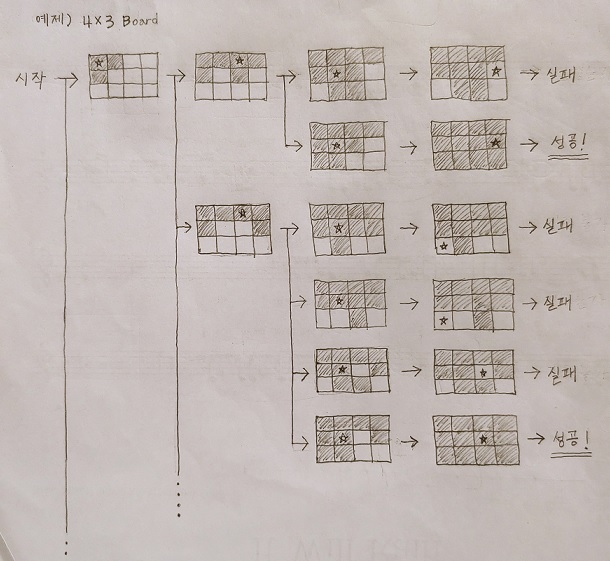 예제) 4×3 Board
시작
실패
성공!
실패
실패
실패
성공!